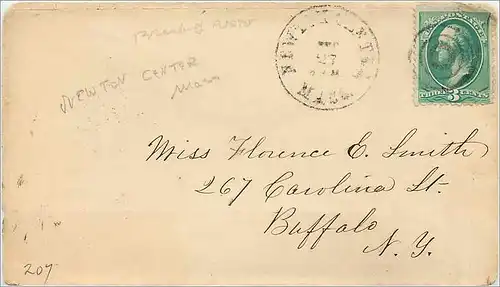 NEWTON CENTER
Mass
NEWTON CENTRE
MASS.
THREE 3 CENTS
Miss Florence E. Smith
267 Carolina St.
Buffalo
N. Y.
207